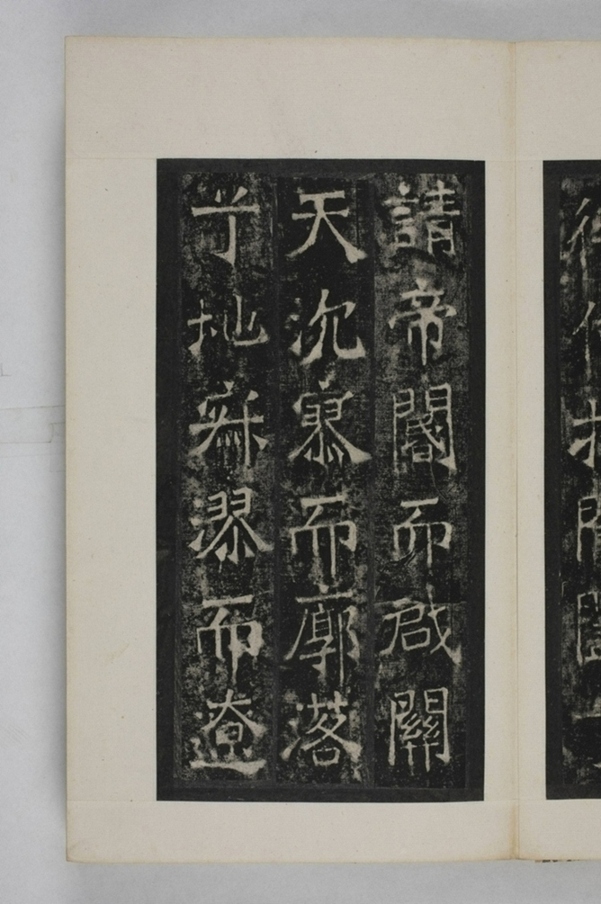 請帝閽而啟關
天泬寥而廓落
兮地寂漻而遼